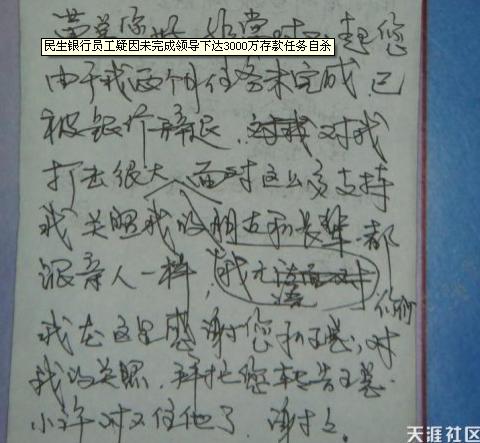 非常对不起您
民生银行员工疑因未完成领导下达3000万存款任务自杀
由于我两个月任务未完成,已
被银行辞退,对我
打击很大,面对这么多支持
我关照我的朋友和长辈都
跟亲人一样,我无法面对你们
我在这里感谢您和王总,对
我的关照,拜托您转告王总.
小许对不住他了,谢谢.
天涯社区